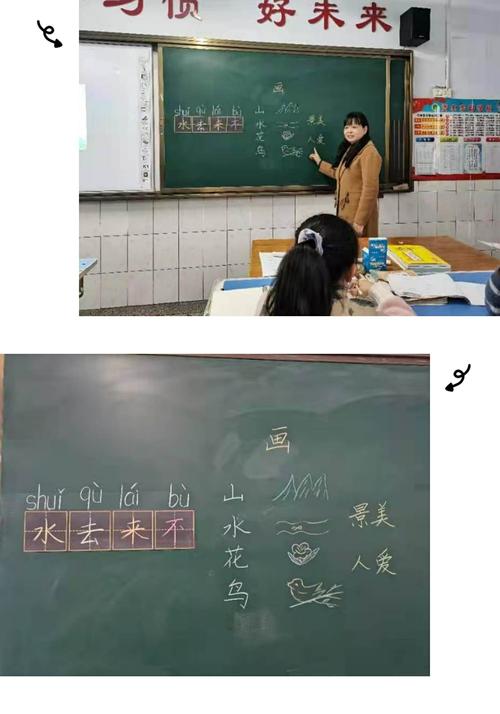 习惯 好未来
画
shuǐ qù lái bù
水去来不
山
水
花
鸟
景美
人爱
画
shuǐ qù lái bù
水去来不
山
水
花
鸟
景美
人爱